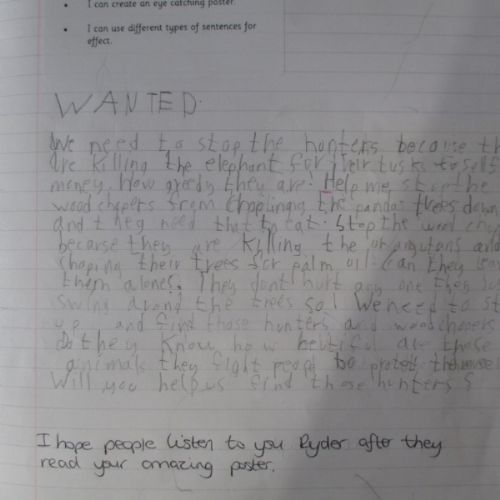 I can create an eye catching poster.
I can use different types of sentences for
effect.
WANTED.
We need to stop the hunters because th
are killing the elephant for their tusks to sell
money. How greedy they are! Help me stop the
wood chopers from chopplingg the pandas trees down
and they need that to eat. Stop the wood chop
because they are killing the orangutans and
choping their trees for palm oil. Can they leav
them alone? They dont hurt any one they
swing around the trees so! We need to st
up and find those hunters and woodchopers
do they know how beutiful are those
animals they fight peopl to proted themselve
Will you help us find those hunters?
I hope people listen to you Ryder after they
read your amazing poster.